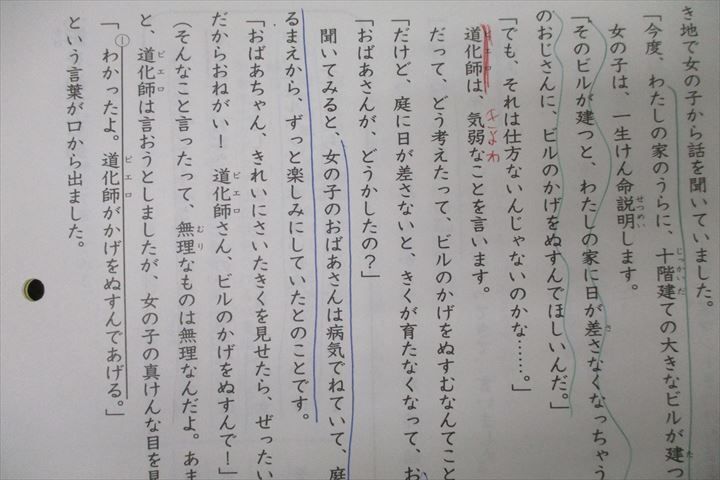 き地で女の子から話を聞いていました。
「今度、わたしの家のうらに、十階建ての大きなビルが建つ
女の子は、一生けん命説明します。
「そのビルが建つと、わたしの家に日が差さなくなっちゃう
のおじさんに、ビルのかげをぬすんでほしいんだ。」
「でも、それは仕方ないんじゃないのかな……。」
道化師は、気弱なことを言います。
だって、どう考えたって、ビルのかげをぬすむなんてこと
「だけど、庭に日が差さないと、きくが育たなくなって、お
「おばあさんが、どうかしたの?」
聞いてみると、女の子のおばあさんは病気でねていて、庭
るまえから、ずっと楽しみにしていたとのことです。
「おばあちゃん、きれいにさいたきくを見せたら、ぜったい
だからおねがい! 道化師さん、ビルのかげをぬすんで!」
(そんなこと言ったって、無理なものは無理なんだよ。あま
と、道化師は言おうとしましたが、女の子の真けんな目を見
「①わかったよ。道化師がかげをぬすんであげる。」
という言葉が口から出ました。